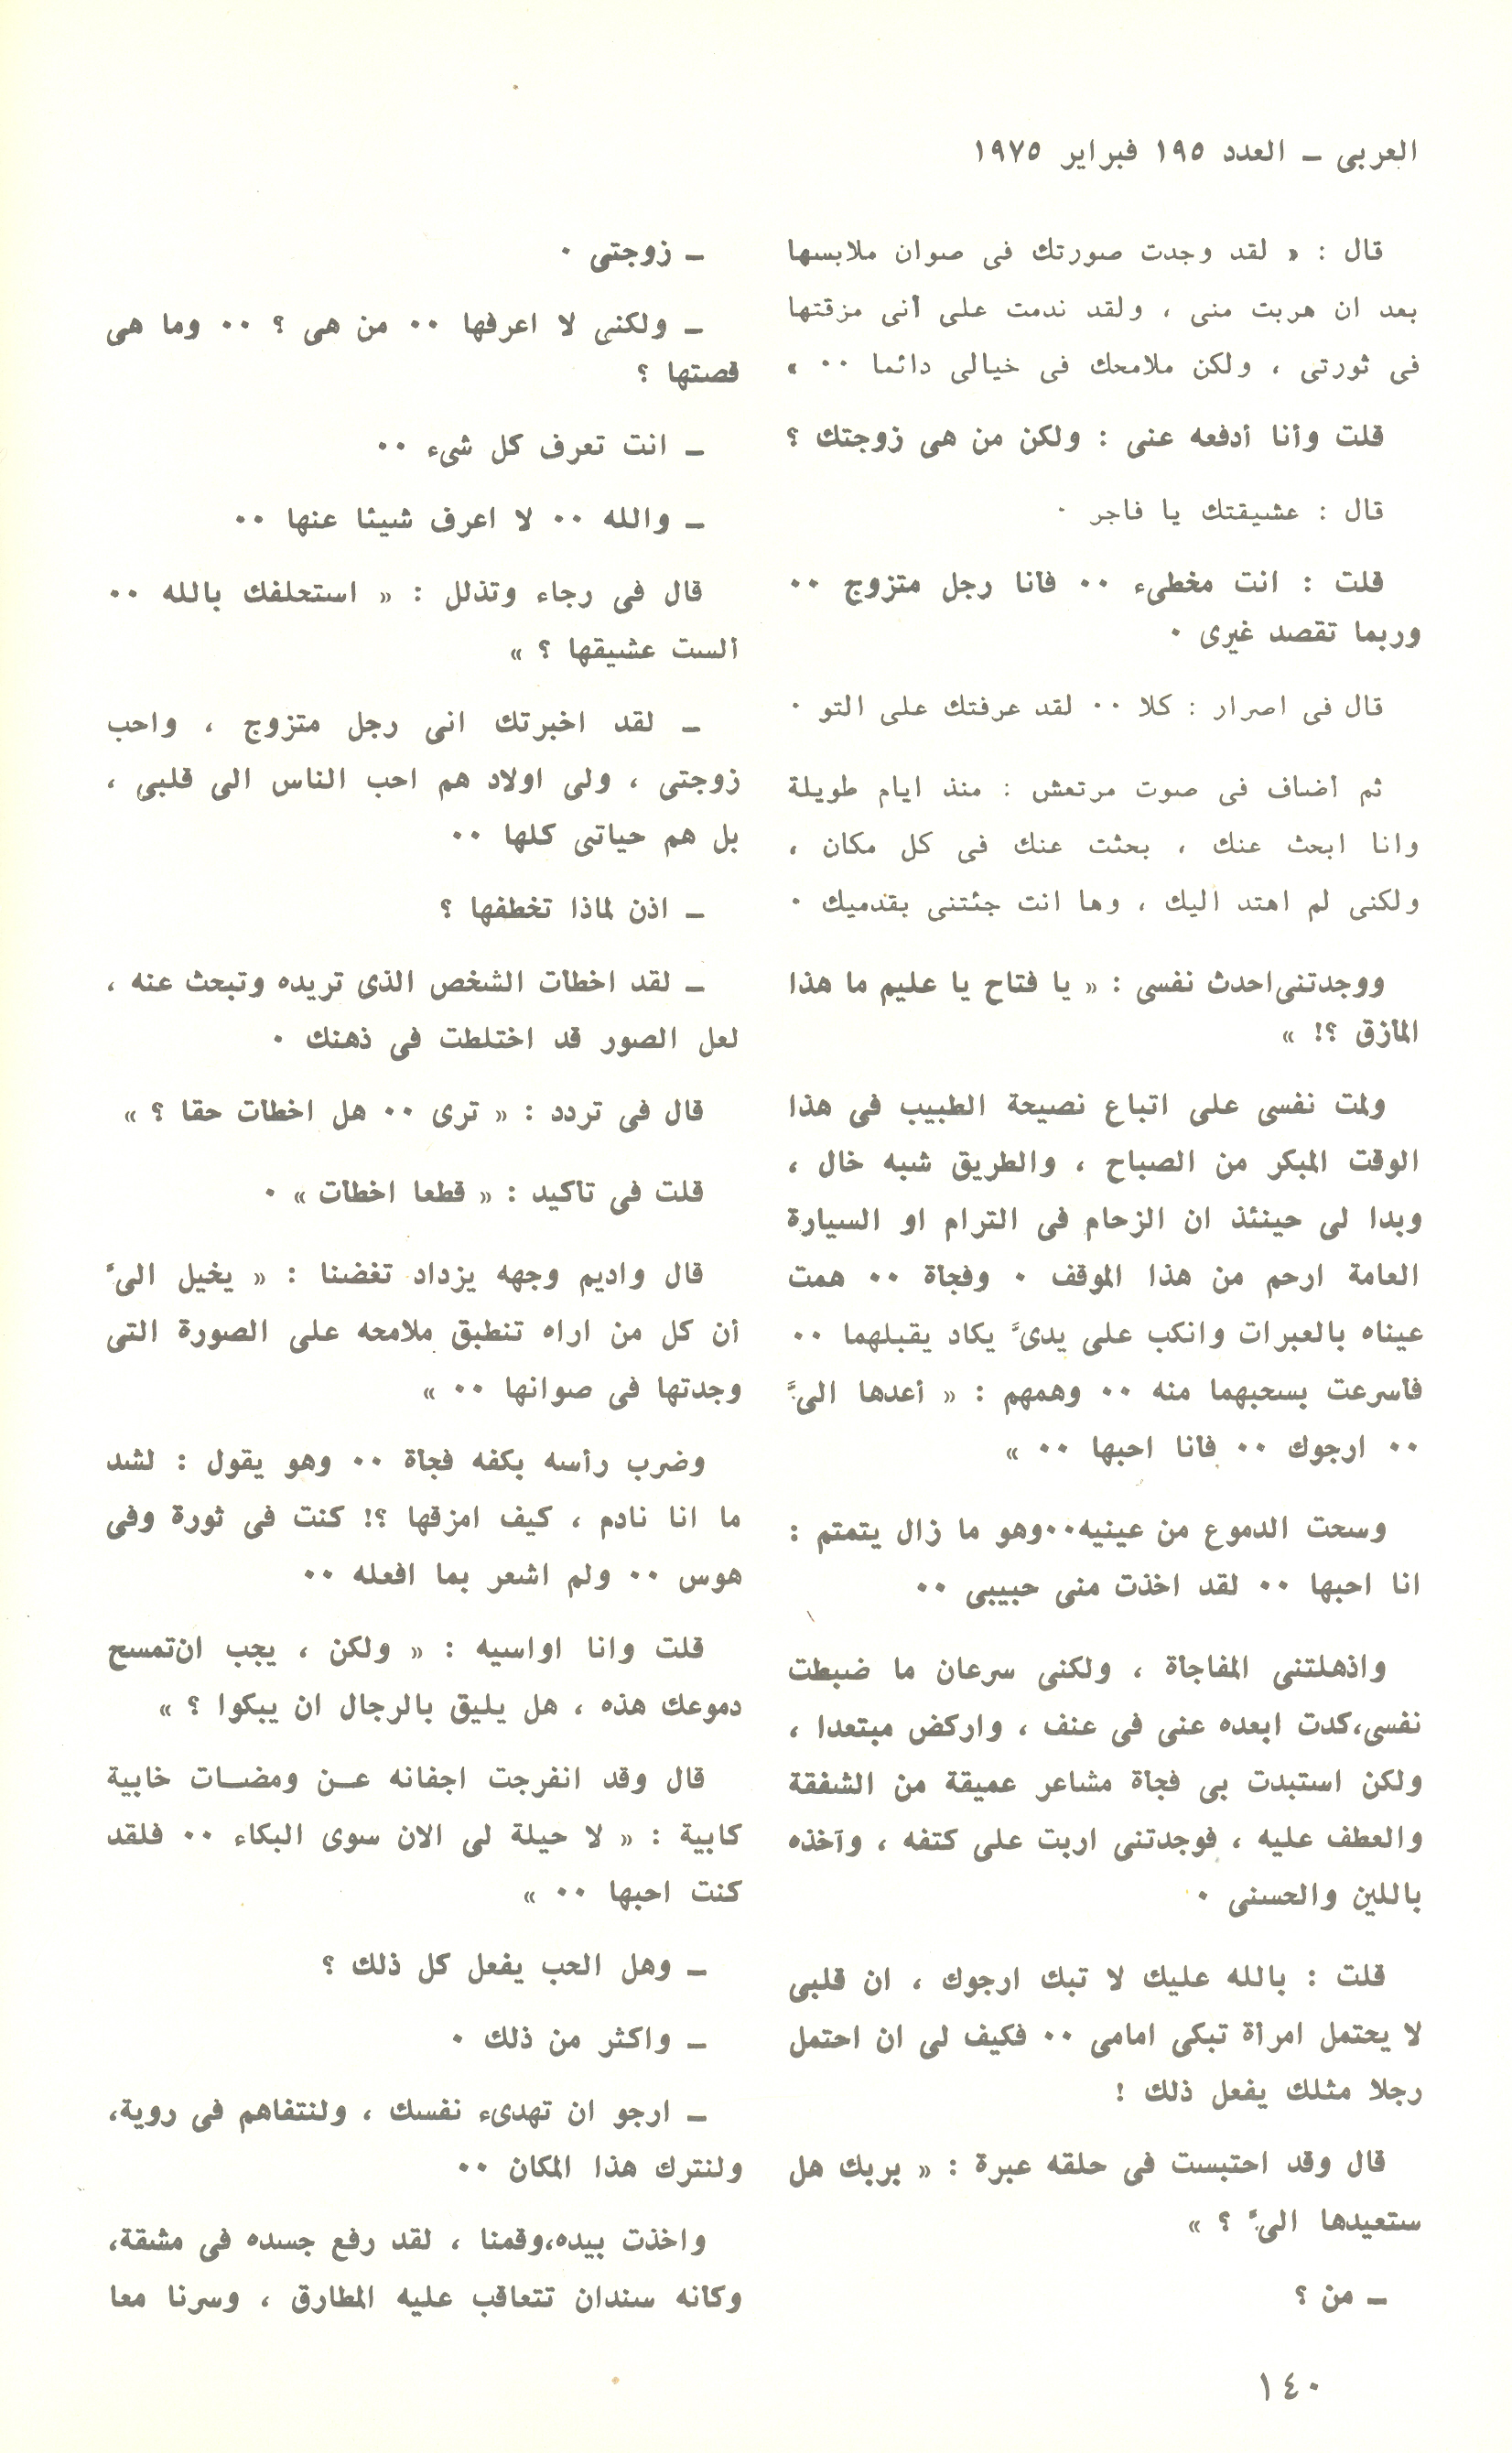 العربى ـ العدد ١٩٥ فبراير ١٩٧٥
قال : « لقد وجدت صورتك فى صوان ملابسها
بعد ان هربت منى ، ولقد ندمت على أنى مزقتها
فى ثورتى ، ولكن ملامحك فى خيالى دائما ٠٠ »
قلت وأنا أدفعه عنى : ولكن من هى زوجتك ؟
قال : عشيقتك يا فاجر ٠
قلت : انت مخطىء ٠٠ فأنا رجل متزوج ٠٠
وربما تقصد غيرى ٠
قال فى اصرار : كلا ٠٠ لقد عرفتك على التو ٠
ثم أضاف فى صوت مرتعش : منذ ايام طويلة
وانا ابحث عنك ، بحثت عنك فى كل مكان ،
ولكنى لم اهتد اليك ، وها انت جئتنى بقدميك ٠
ووجدتنى احدث نفسى : « يا فتاح يا عليم ما هذا
المأزق ؟! »
ولمت نفسى على اتباع نصيحة الطبيب فى هذا
الوقت المبكر من الصباح ، والطريق شبه خال ،
وبدا لى حينئذ ان الزحام فى الترام او السيارة
العامة ارحم من هذا الموقف ٠ وفجأة ٠٠ همت
عيناه بالعبرات وانكب على يدىَّ يكاد يقبلهما ٠٠
فأسرعت بسحبهما منه ٠٠ وهمهم : « أعدها الىَّ
٠٠ ارجوك ٠٠ فأنا احبها ٠٠ »
وسحت الدموع من عينيه٠٠وهو ما زال يتمتم :
انا احبها ٠٠ لقد اخذت منى حبيبى ٠٠
واذهلتنى المفاجأة ، ولكنى سرعان ما ضبطت
نفسى،كدت ابعده عنى فى عنف ، واركض مبتعدا ،
ولكن استبدت بى فجأة مشاعر عميقة من الشفقة
والعطف عليه ، فوجدتنى اربت على كتفه ، وآخذه
باللين والحسنى ٠
قلت : بالله عليك لا تبك ارجوك ، ان قلبى
لا يحتمل امرأة تبكى امامى ٠٠ فكيف لى ان احتمل
رجلا مثلك يفعل ذلك !
قال وقد احتبست فى حلقه عبرة : « بربك هل
ستعيدها الىَّ ؟ »
ـ من ؟
ـ زوجتى ٠
ـ ولكنى لا اعرفها ٠٠ من هى ؟ ٠٠ وما هى
قصتها ؟
ـ انت تعرف كل شىء ٠٠
ـ والله ٠٠ لا اعرف شيئا عنها ٠٠
قال فى رجاء وتذلل : « استحلفك بالله ٠٠
ألست عشيقها ؟ »
ـ لقد اخبرتك انى رجل متزوج ، واحب
زوجتى ، ولى اولاد هم احب الناس الى قلبى ،
بل هم حياتى كلها ٠٠
ـ اذن لماذا تخطفها ؟
ـ لقد اخطأت الشخص الذى تريده وتبحث عنه ،
لعل الصور قد اختلطت فى ذهنك ٠
قال فى تردد : « ترى ٠٠ هل اخطأت حقا ؟ »
قلت فى تأكيد : « قطعا اخطأت » ٠
قال واديم وجهه يزداد تغضنا : « يخيل الىَّ
أن كل من اراه تنطبق ملامحه على الصورة التى
وجدتها فى صوانها ٠٠ »
وضرب رأسه بكفه فجأة ٠٠ وهو يقول : لشد
ما انا نادم ، كيف امزقها ؟! كنت فى ثورة وفى
هوس ٠٠ ولم اشعر بما افعله ٠٠
قلت وانا اواسيه : « ولكن ، يجب ان تمسح
دموعك هذه ، هل يليق بالرجال ان يبكوا ؟ »
قال وقد انفرجت اجفانه عـن ومضـات خابية
كابية : « لا حيلة لى الان سوى البكاء ٠٠ فلقد
كنت احبها ٠٠ »
ـ وهل الحب يفعل كل ذلك ؟
ـ واكثر من ذلك ٠
ـ ارجو ان تهدىء نفسك ، ولنتفاهم فى روية،
ولنترك هذا المكان ٠٠
واخذت بيده،وقمنا ، لقد رفع جسده فى مشقة،
وكأنه سندان تتعاقب عليه المطارق ، وسرنا معا
١٤٠